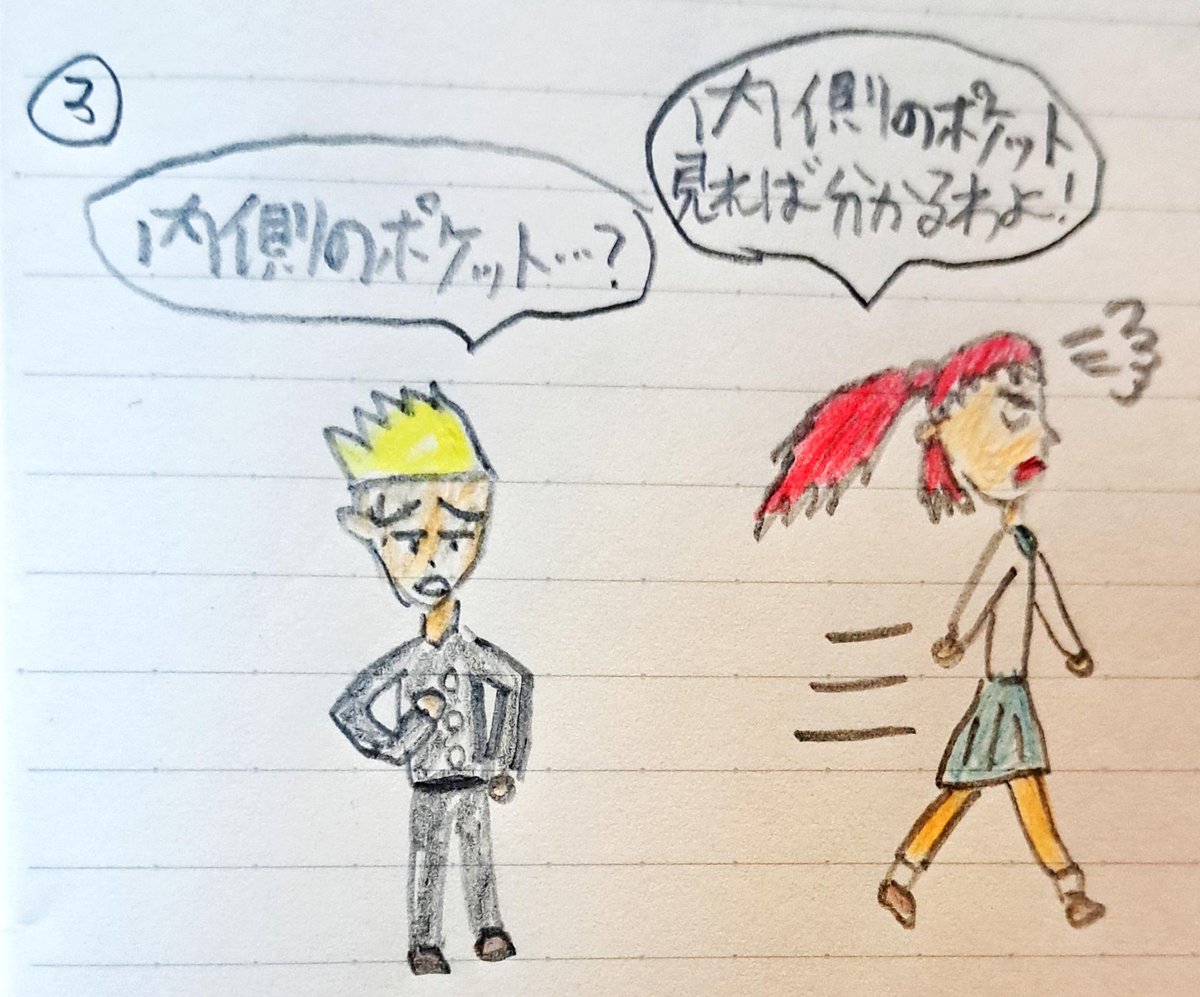 ③
内側のポケット
見れば分かるわよ!
内側のポケット…?